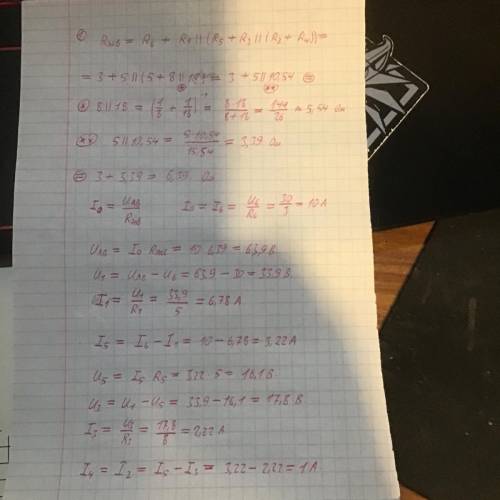 ①
Rэкв = R6 + R1 || (R5 + R3 || (R2 + R4)) =
= 3 + 5 || (5 + 8 || 18) = 3 + 5 || 10,54 ⊜
* 8 || 18 = (1/8 + 1/18)⁻¹ = 8·18/8+18 = 144/26 = 5,54 Ом
** 5 || 10,54 = 5·10,54/15,54 = 3,39 Ом
⊜ 3 + 3,39 = 6,39 Ом
I0 = UAB/Rэкв I0 = I6 = U6/R6 = 30/3 = 10 A
UAB = I0 Rэкв = 10·6,39 = 63,9 В
U1 = UAB − U6 = 63,9 − 30 = 33,9 В
I1 = U1/R1 = 33,9/5 = 6,78 A
I5 = I6 − I1 = 10 − 6,78 = 3,22 A
U5 = I5 R5 = 3,22·5 = 16,1 В
U3 = U1 − U5 = 33,9 − 16,1 = 17,8 В
I3 = U3/R3 = 17,8/8 = 2,22 A
I4 = I2 = I5 − I3 = 3,22 − 2,22 = 1 A